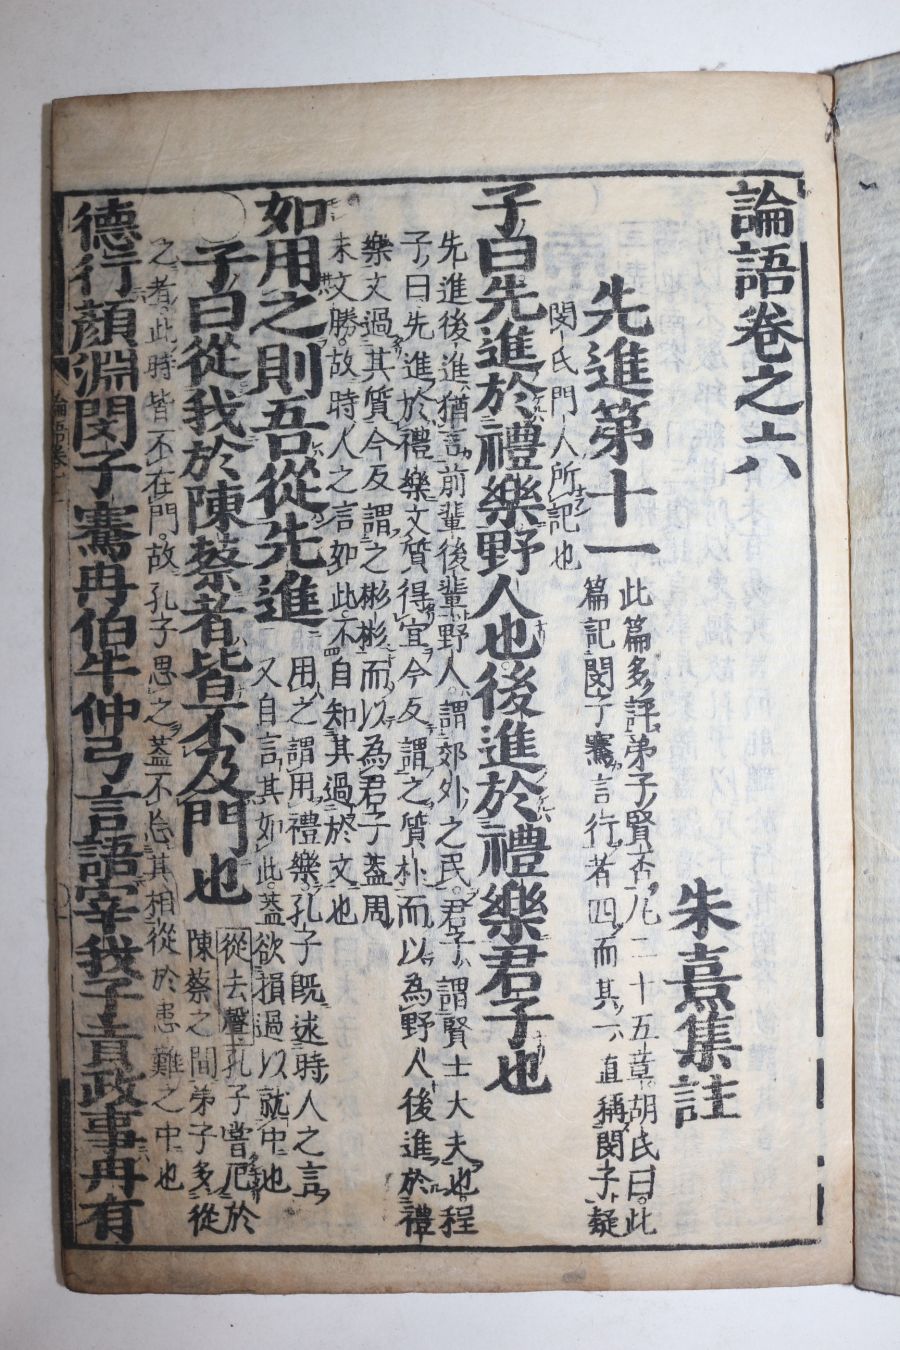 論語卷之六
朱熹集註
先進第十一
此篇多評弟子賢否凡二十五章胡氏曰此
篇記閔子騫言行者四而其一直稱閔子疑
閔氏門人所記也
子曰先進於禮樂野人也後進於禮樂君子也
先進後進猶言前輩後輩野人謂郊外之民君子謂賢士大夫也程
子曰先進於禮樂文質得宜今反謂之質朴而以為野人後進於禮
樂文過其質今反謂之彬彬而以為君子蓋周
末文勝故時人之言如此不自知其過於文也
如用之則吾從先進
用之謂用禮樂孔子既述時人之言
又自言其如此蓋欲損過以就中也
子曰從我於陳蔡者皆不及門也
從去聲孔子嘗厄於
陳蔡之間弟子多從
之者此時皆不在門故孔子思之蓋不忘其相從於患難之中也
德行顏淵閔子騫冉伯牛仲弓言語宰我子貢政事冉有
論語卷